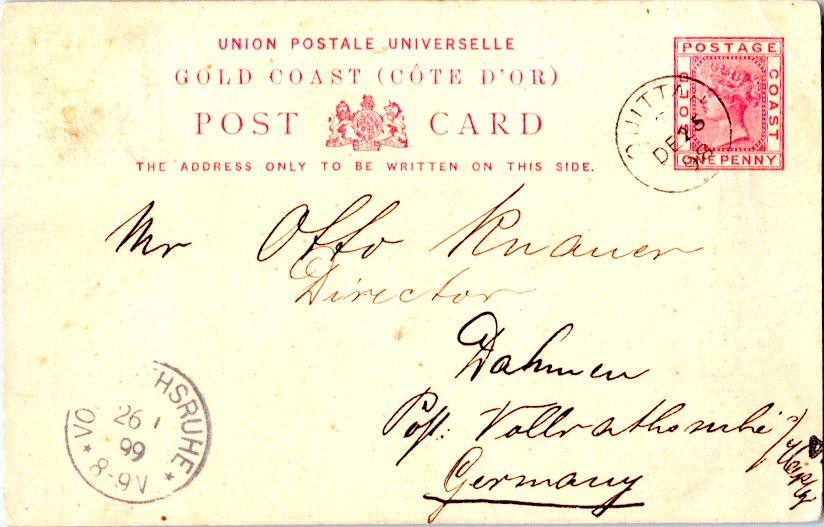 UNION POSTALE UNIVERSELLE
GOLD COAST (CÔTE D'OR)
POST CARD
THE ADDRESS ONLY TO BE WRITTEN ON THIS SIDE.
POSTAGE
GOLD COAST
ONE PENNY
QUITTAH
DE 25
98
Mr Otto Knauer
Director
Dahmen
Post: Vollrathsruhe
Germany
VO HSRUHE
26 1
99
8-9V